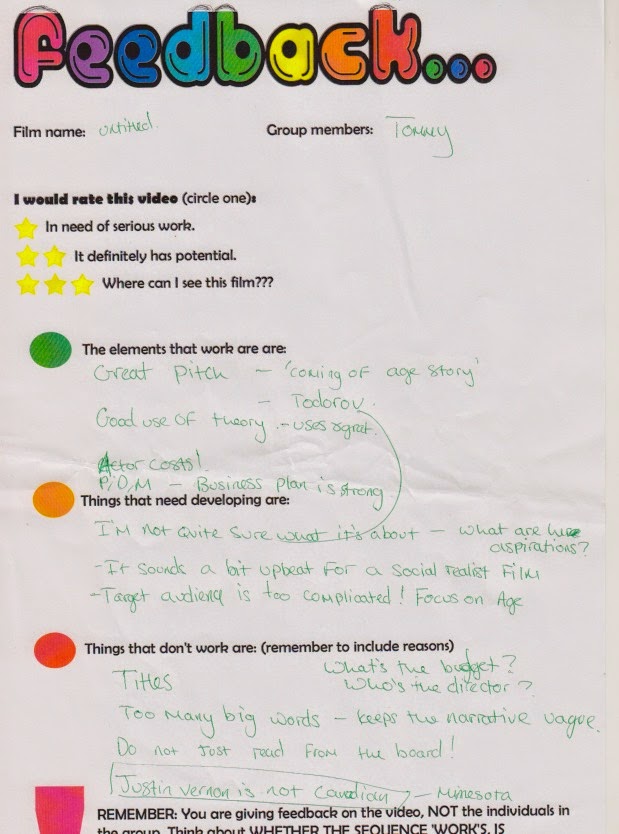 Feedback...
Film name: untitled.
Group members: Tommy
I would rate this video (circle one):
In need of serious work.
It definitely has potential.
Where can I see this film???
The elements that work are are:
Great pitch - 'coming of age story'
- Todorov.
Good use of theory - uses &grat.
Actor costs!
P,D,M - Business plan is strong
Things that need developing are:
I'm not quite sure what it's about - what are her
aspirations?
-It sounds a bit upbeat for a social realist film
-Target audience is too complicated! Focus on Age
Things that don't work are: (remember to include reasons)
What's the budget?
Titles
Who's the director?
Too many big words - keeps the narrative vague.
Do not just read from the board!
Justin Vernon is not Canadian - Minesota
REMEMBER: You are giving feedback on the video, NOT the individuals in
the group. Think about WHETHER THE SEQUENCE 'WORKS'. IS